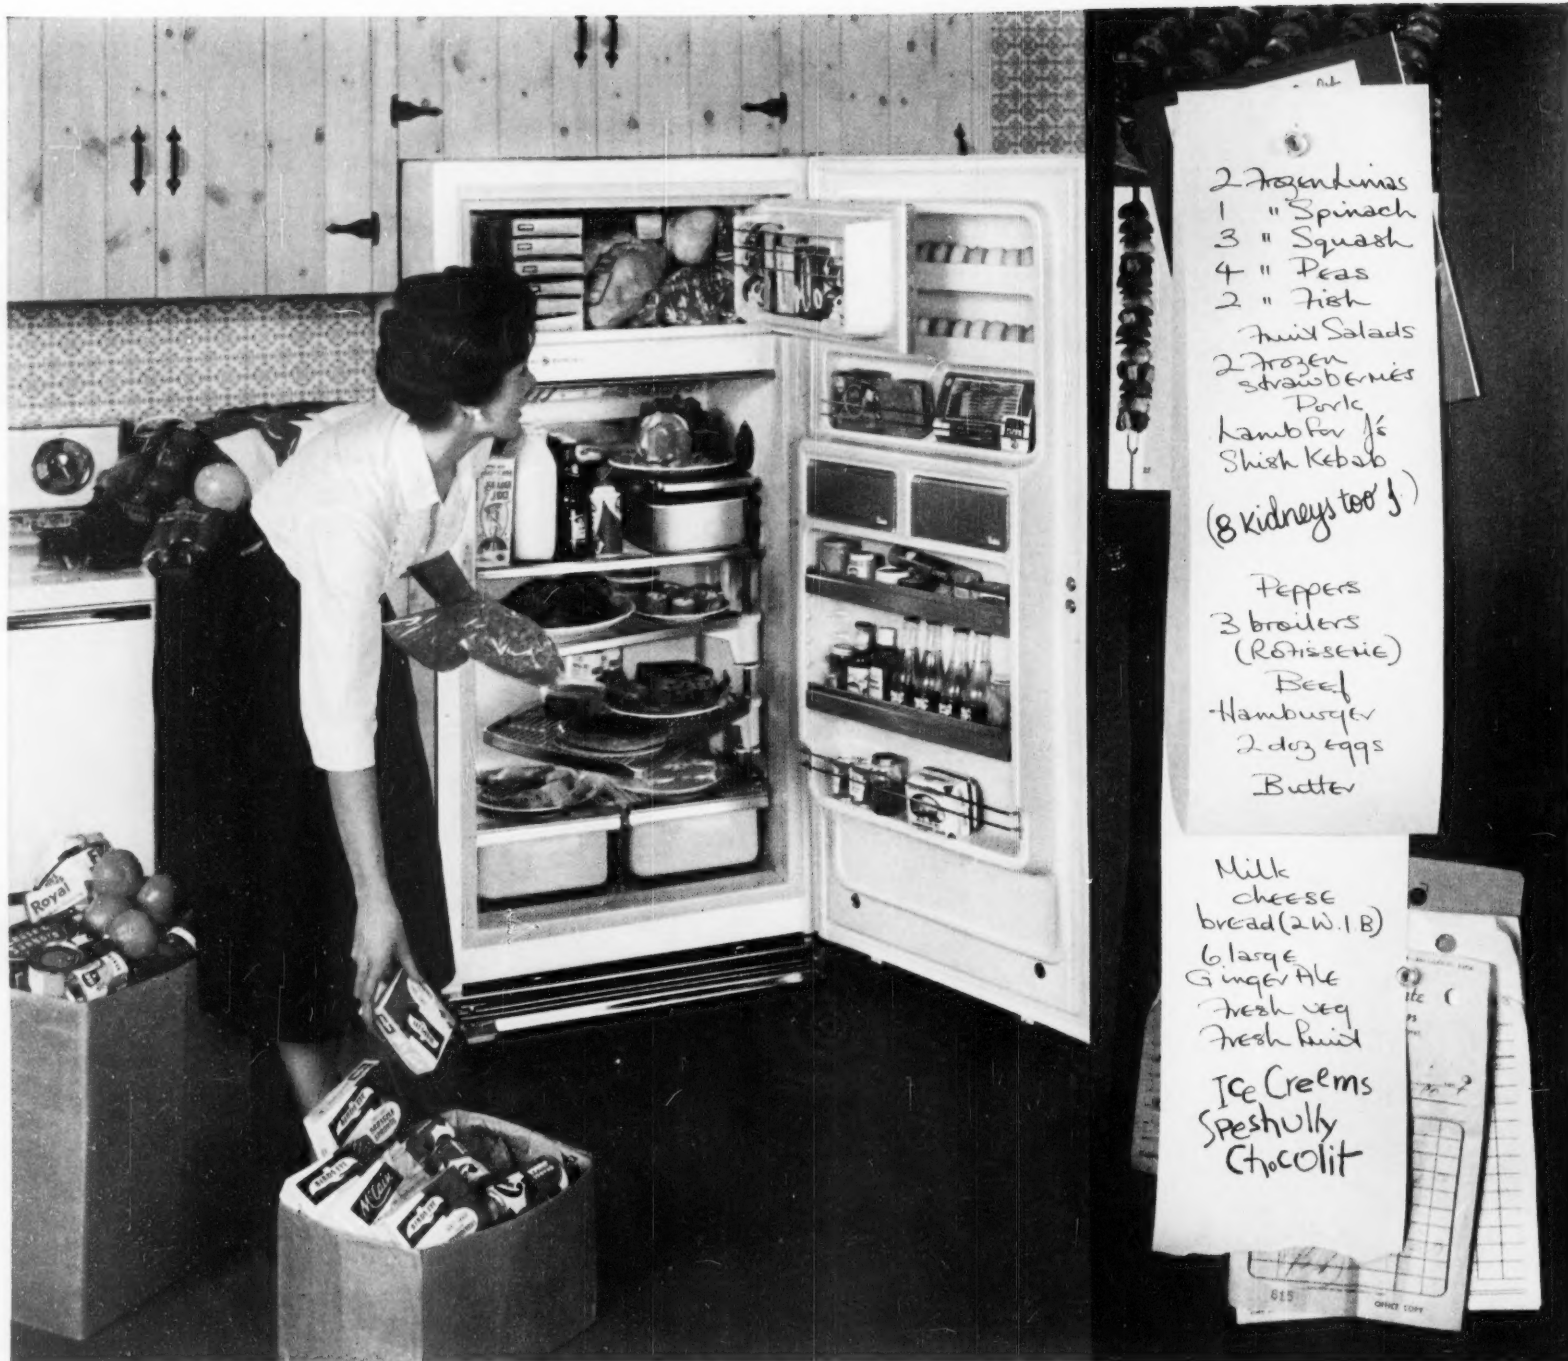 2 Frozen Limas
1 " Spinach
3 " Squash
4 " Peas
2 " Fish
Fruit Salads
2 Frozen
strawberries
Pork
Lamb for J's
Shish Kebab
(8 kidneys too J.)
Peppers
3 broilers
(Rotisserie)
Beef
Hamburger
2 doz eggs
Butter
Milk
cheese
bread (2 W. 1 B)
6 large
Ginger Ale
Fresh veg
Fresh fruit
Ice Creems
Speshully
Chocolit
615
OFFICE COPY
Royal